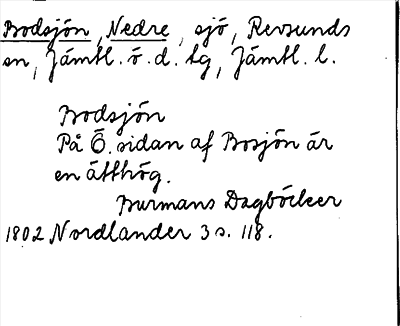 Bodsjön, Nedre, sjö, Revsunds
sn, Jämtl. ö. d. tg, Jämtl. l.
Bodsjön
På Ö. sidan af Bosjön är
en ätthög.
Burmans Dagböcker
1802 Nordlander 3 s. 118.